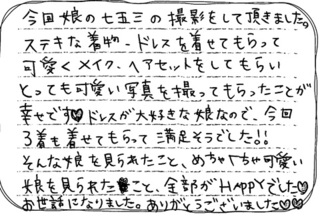 今回娘の七五三の撮影をして頂きました。
ステキな着物・ドレスを着せてもらって
可愛くメイク、ヘアセットをしてもらい
とっても可愛い写真を撮ってもらったことが
幸せです♥ドレスが大好きな娘なので、今回
3着も着せてもらって満足そうでした!!
そんな娘を見られたこと、めちゃくちゃ可愛い
娘を見られたこと、全部がHAPPYでした♥
お世話になりました。ありがとうございました♥♥